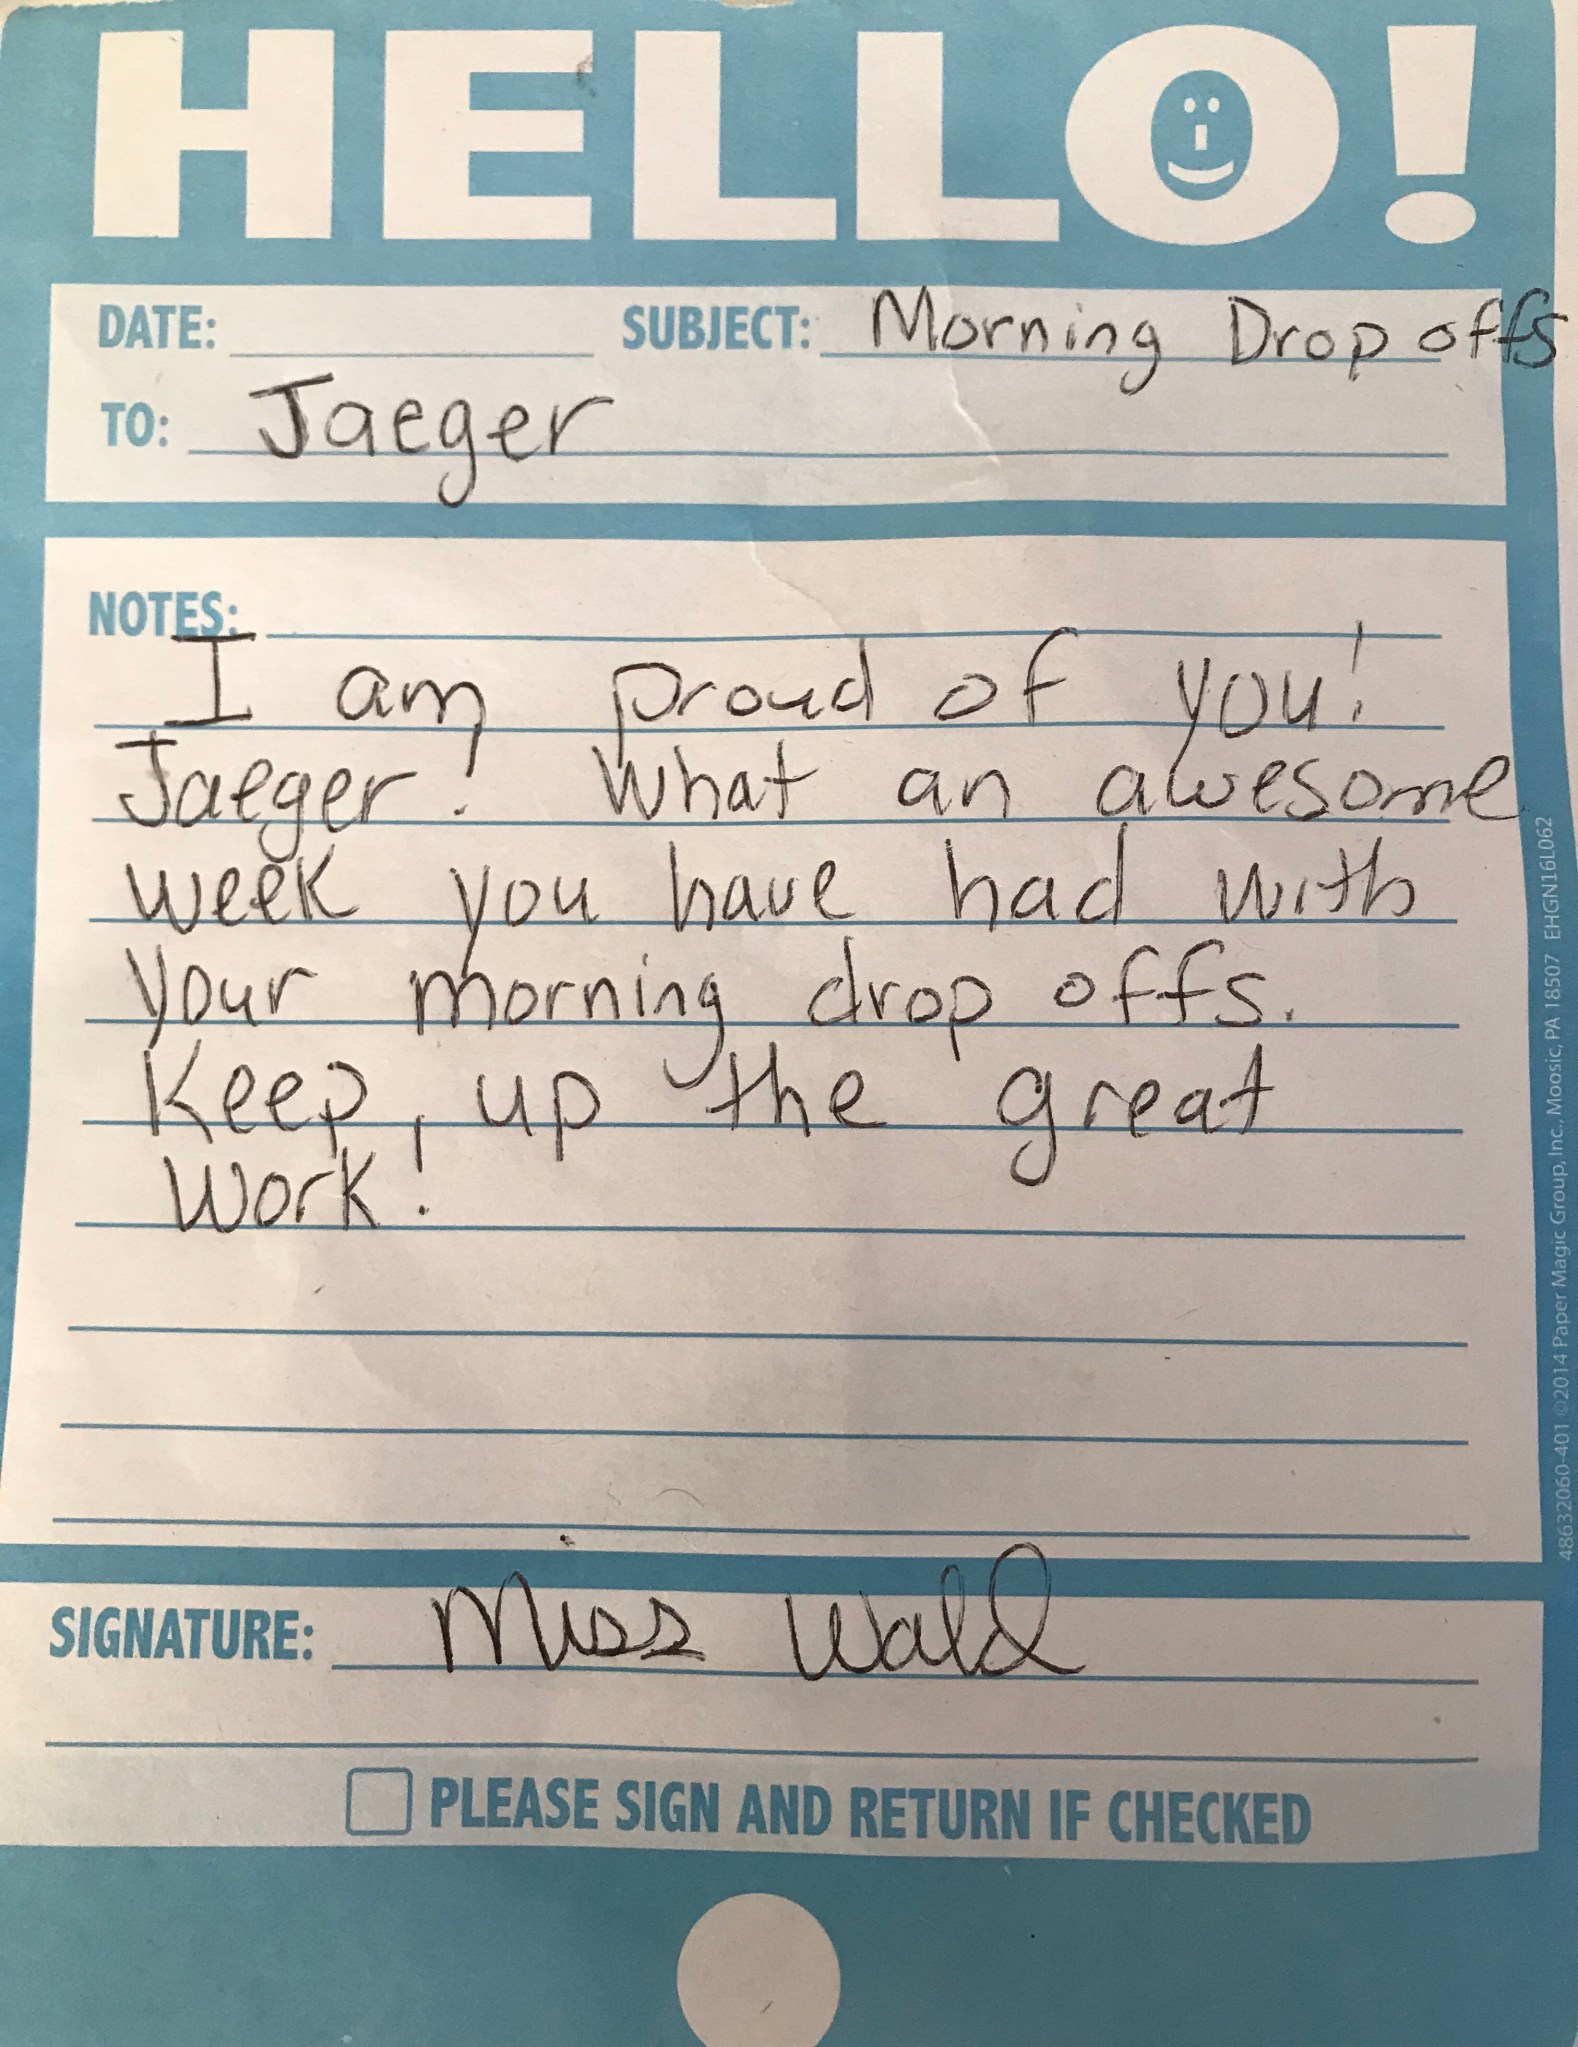 HELLO!
DATE: SUBJECT: Morning Drop offs
TO: Jaeger
NOTES:
I am proud of you!
Jaeger! What an awesome
week you have had with
your morning drop offs.
Keep, up the great
work!
SIGNATURE: Miss Wald
PLEASE SIGN AND RETURN IF CHECKED
48632060-401 ©2014 Paper Magic Group, Inc., Moosic, PA 18507 EHGN16L062